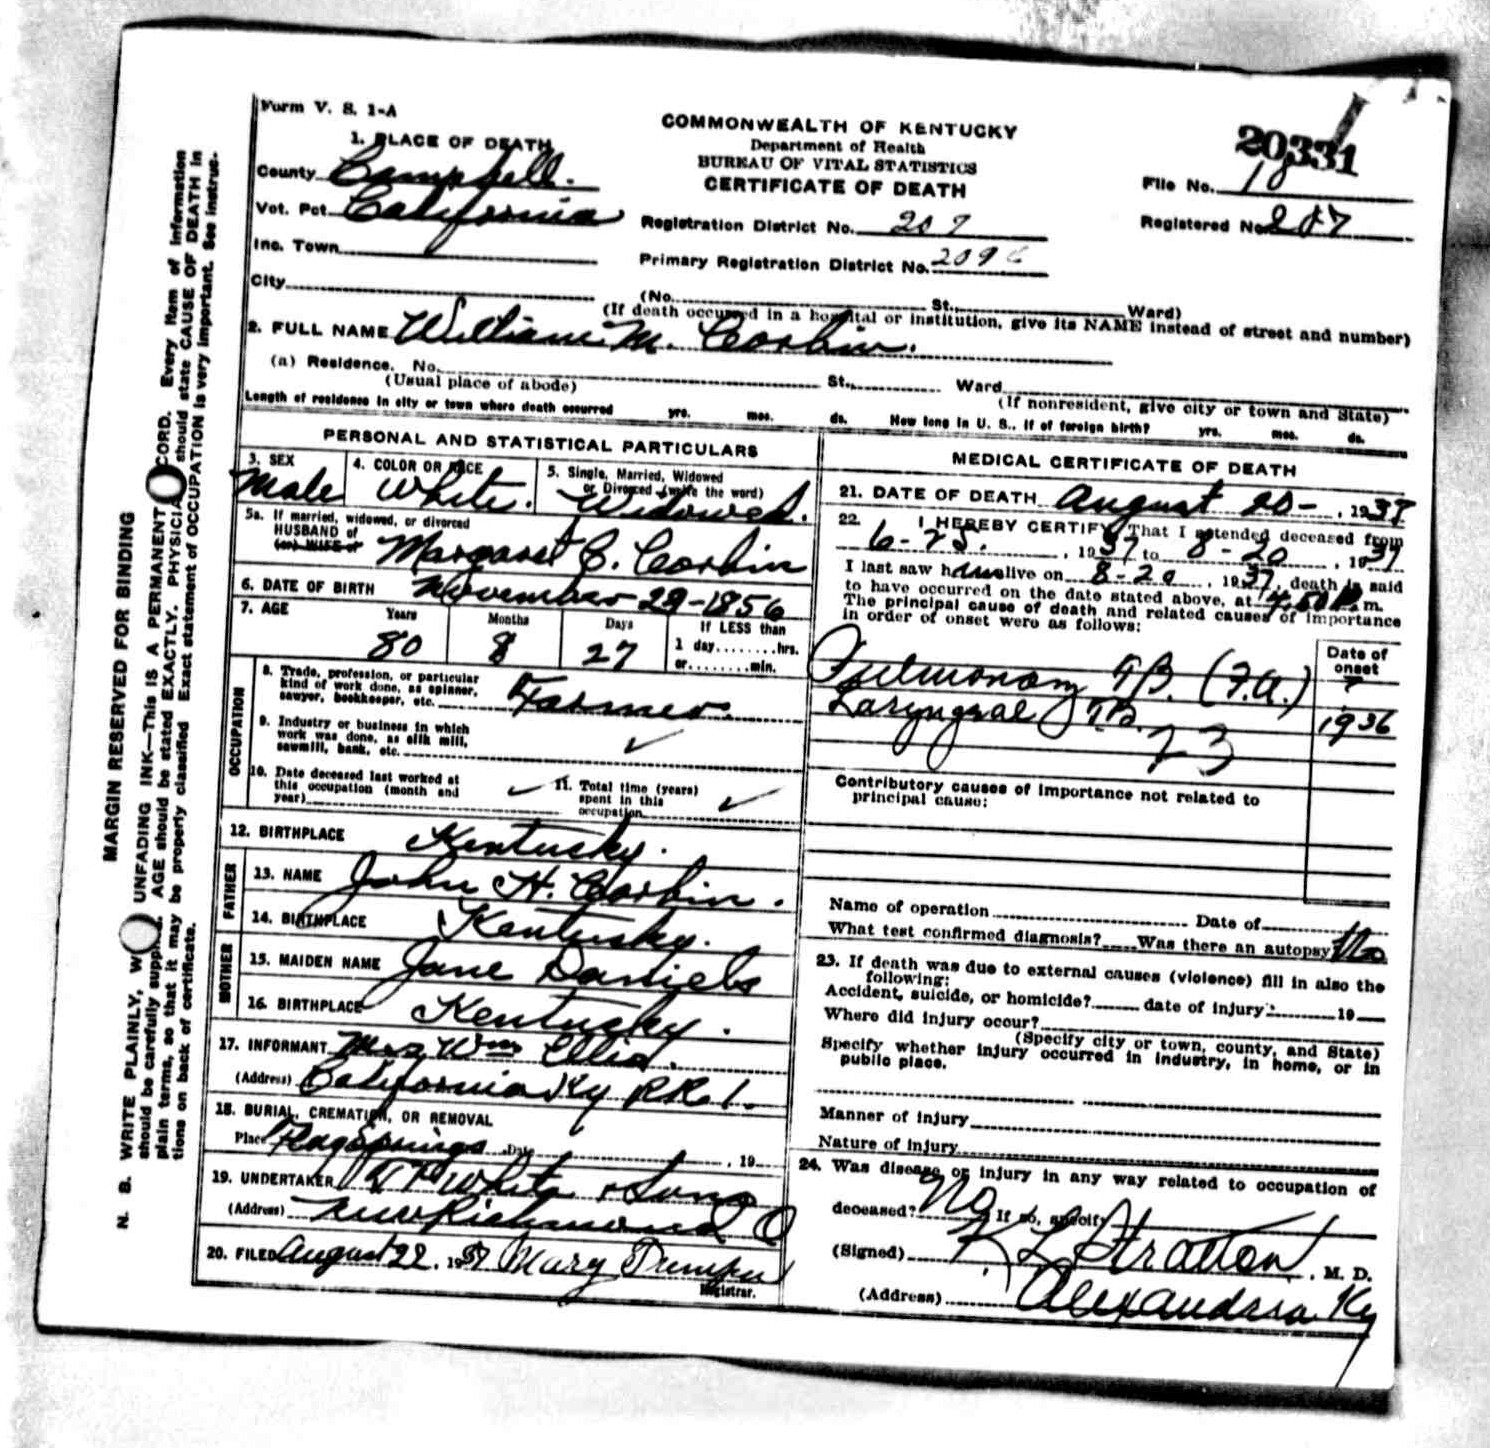 Form V. S. 1-A
1. PLACE OF DEATH
County Campbell.
Vot. Pct. California
Inc. Town
City
COMMONWEALTH OF KENTUCKY
Department of Health
BUREAU OF VITAL STATISTICS
CERTIFICATE OF DEATH
Registration District No. 207
Primary Registration District No. 2096
20331
File No. 18
Registered No. 207
(No. St., Ward)
(If death occurred in a hospital or institution, give its NAME instead of street and number)
2. FULL NAME William M. Corbin.
(a) Residence. No. St., Ward
(Usual place of abode) (If nonresident, give city or town and State)
Length of residence in city or town where death occurred yrs. mos. ds. How long in U. S., if of foreign birth? yrs. mos. ds.
PERSONAL AND STATISTICAL PARTICULARS
3. SEX 4. COLOR OR RACE 5. Single, Married, Widowed or Divorced (write the word)
Male White. Widowed.
5a. If married, widowed, or divorced
HUSBAND of
(or) WIFE of Margaret C. Corbin
6. DATE OF BIRTH November 23-1856
7. AGE Years Months Days If LESS than
80 8 27 1 day........hrs.
or........min.
OCCUPATION
8. Trade, profession, or particular
kind of work done, as spinner,
sawyer, bookkeeper, etc. Farmer.
9. Industry or business in which
work was done, as silk mill,
sawmill, bank, etc. ✓
10. Date deceased last worked at
this occupation (month and
year) ✓
11. Total time (years)
spent in this
occupation ✓
12. BIRTHPLACE Kentucky.
FATHER
13. NAME John H. Corbin.
14. BIRTHPLACE Kentucky.
MOTHER
15. MAIDEN NAME Jane Daniels
16. BIRTHPLACE Kentucky.
17. INFORMANT Mrs Wm Ellis.
(Address) California Ky RR 1.
18. BURIAL, CREMATION, OR REMOVAL
Place Flag Springs Date , 19
19. UNDERTAKER White & Sons
(Address) New Richmond O
20. FILED August 22, 1937 Mary
Registrar.
MEDICAL CERTIFICATE OF DEATH
21. DATE OF DEATH August 20-, 1937
22. I HEREBY CERTIFY, That I attended deceased from
6-25., 1937 to 8-20, 1937
I last saw him alive on 8-20, 1937, death is said
to have occurred on the date stated above, at m.
The principal cause of death and related causes of importance
in order of onset were as follows:
Date of
onset
Pulmonary TB. (F.A.) ?
Laryngeal TB. 1936
23
Contributory causes of importance not related to
principal cause:
Name of operation Date of
What test confirmed diagnosis? Was there an autopsy? No
23. If death was due to external causes (violence) fill in also the
following:
Accident, suicide, or homicide? date of injury 19
Where did injury occur?
(Specify city or town, county, and State)
Specify whether injury occurred in industry, in home, or in
public place.
Manner of injury
Nature of injury
24. Was disease or injury in any way related to occupation of
deceased? No If so, specify
(Signed) K L Stratton, M. D.
(Address) Alexandria Ky
MARGIN RESERVED FOR BINDING
N. B. WRITE PLAINLY, W UNFADING INK—This is a PERMANENT CORD. Every item of information
should be carefully supp. AGE should be stated EXACTLY. PHYSICIA should state CAUSE OF DEATH in
plain terms, so that it may be properly classified. Exact statement of OCCUPATION is very important. See instruc-
tions on back of certificate.